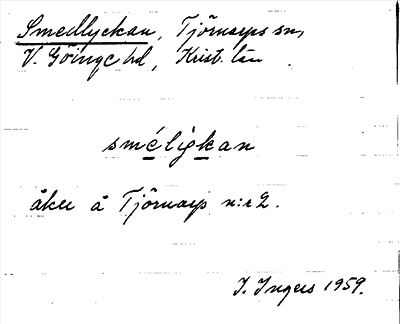 Smedlyckan, Tjörnarps sn,
V. Göinge hd, Krist. län
sméligkan
åker å Tjörnarp n:r 2.
I. Ingers 1959.